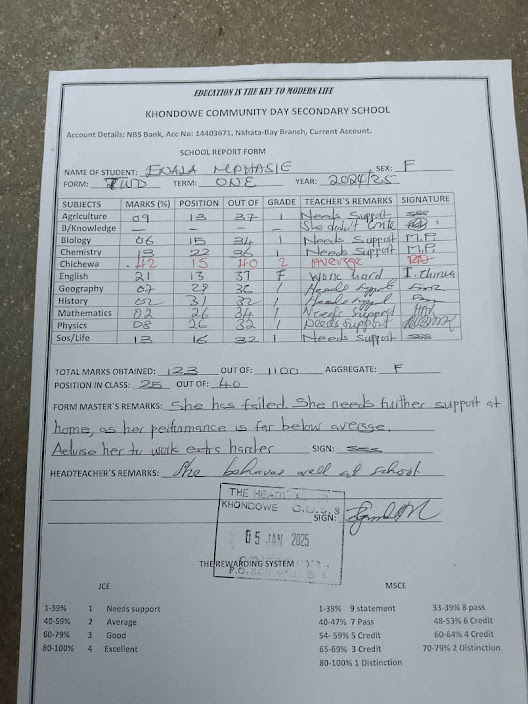 EDUCATION IS THE KEY TO MODERN LIFE
KHONDOWE COMMUNITY DAY SECONDARY SCHOOL
Account Details: NBS Bank, Acc No: 14403671, Nkhata-Bay Branch, Current Account.
SCHOOL REPORT FORM
NAME OF STUDENT: ENALA MPHASIE SEX: F
FORM: TWO TERM: ONE YEAR: 2024/25
SUBJECTS MARKS (%) POSITION OUT OF GRADE TEACHER'S REMARKS SIGNATURE
Agriculture 09 13 37 1 Needs Support
B/Knowledge — — — — She didn't write
Biology 06 15 34 1 Needs Support M.P
Chemistry 13 22 36 1 Needs Support M.P
Chichewa 42 15 40 2 Average
English 21 13 37 F Work hard I. Chirwa
Geography 07 29 36 1 Needs support
History 02 31 32 1 Needs support
Mathematics 02 26 34 1 Needs support
Physics 08 26 32 1 Needs support
Sos/Life 13 16 32 1 Needs Support
TOTAL MARKS OBTAINED: 123 OUT OF: 1100 AGGREGATE: F
POSITION IN CLASS: 25 OUT OF: 40
FORM MASTER'S REMARKS: She has failed. She needs further support at
home, as her performance is far below average.
Advise her to work extra harder SIGN:
HEADTEACHER'S REMARKS: She behaves well at school
THE HEAD
KHONDOWE C.D.S.S
SIGN:
05 JAN 2025
THE REWARDING SYSTEM
JCE MSCE
1-39% 1 Needs support 1-39% 9 statement 33-39% 8 pass
40-59% 2 Average 40-47% 7 Pass 48-53% 6 Credit
60-79% 3 Good 54- 59% 5 Credit 60-64% 4 Credit
80-100% 4 Excellent 65-69% 3 Credit 70-79% 2 Distinction
80-100% 1 Distinction